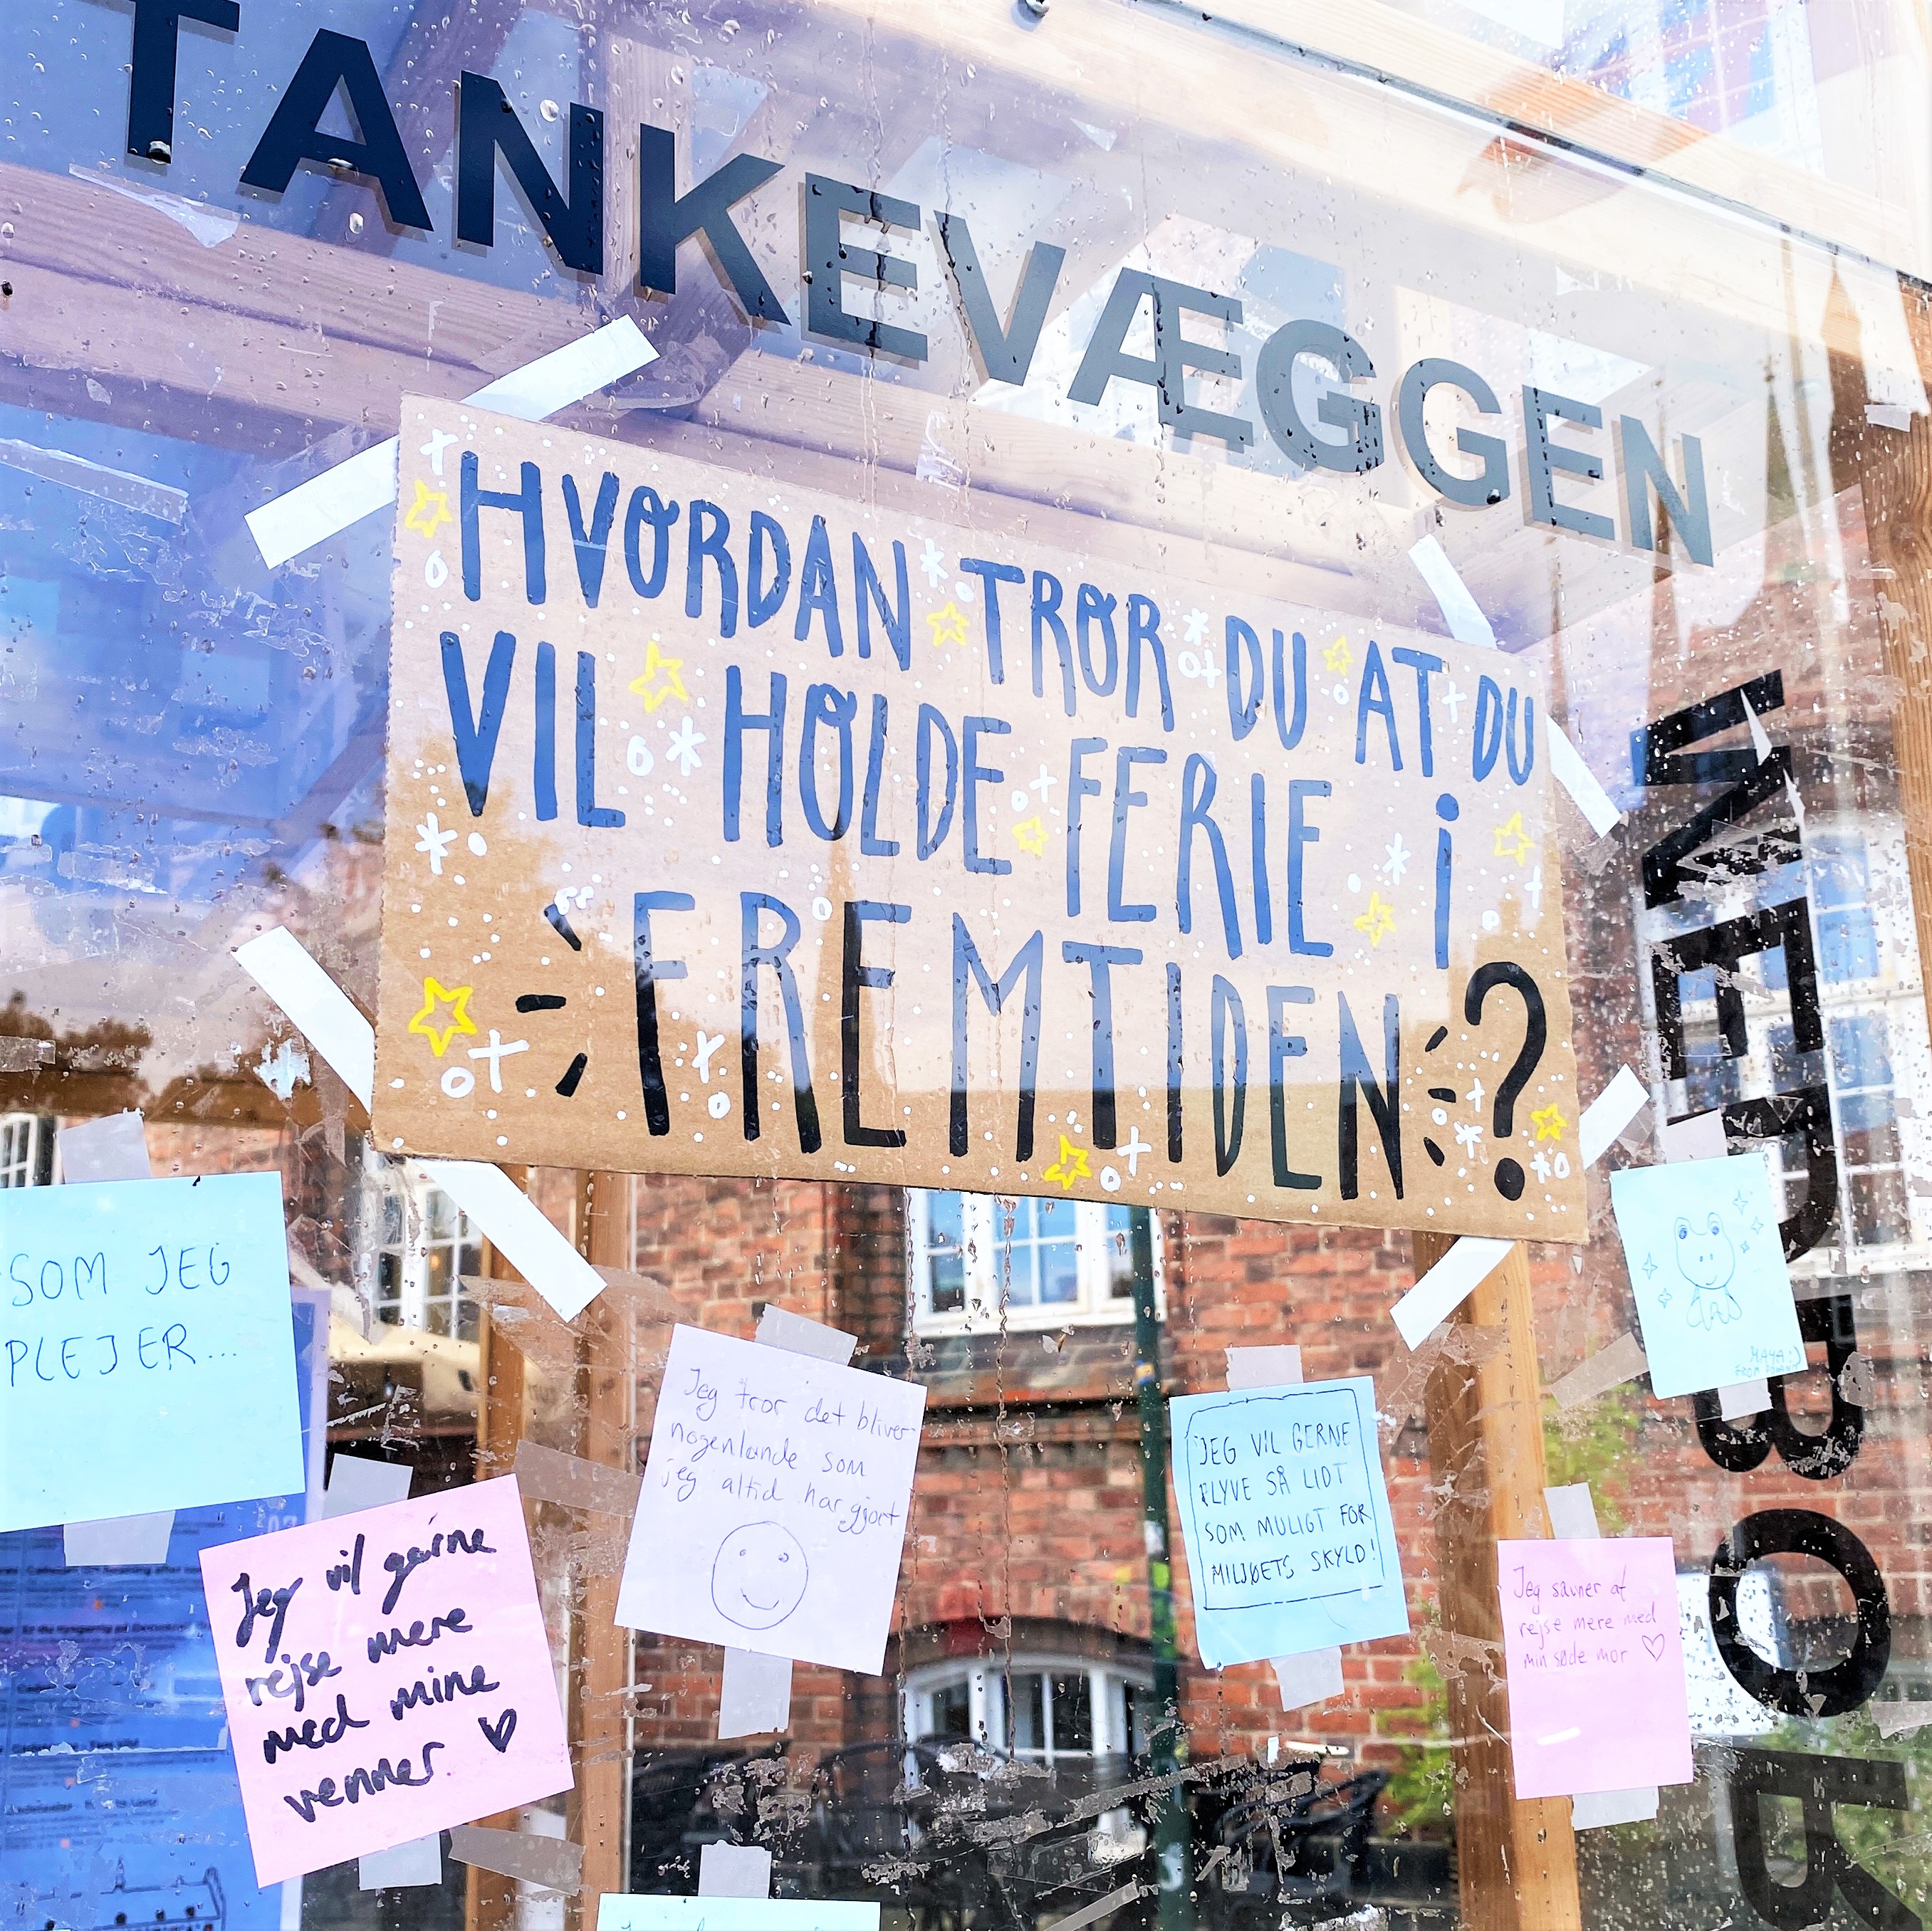 TANKEVÆGGEN
HVORDAN TROR DU AT DU
VIL HOLDE FERIE i
FREMTIDEN?
SOM JEG
PLEJER...
Jeg vil gærne
rejse mere
med mine
venner ♥
Jeg tror det bliver
nogenlunde som
jeg altid har gjort
JEG VIL GERNE
FLYVE SÅ LIDT
SOM MULIGT FOR
MILJØETS SKYLD!
MAYA :)
FROM
Jeg savner at
rejse mere med
min søde mor ♡